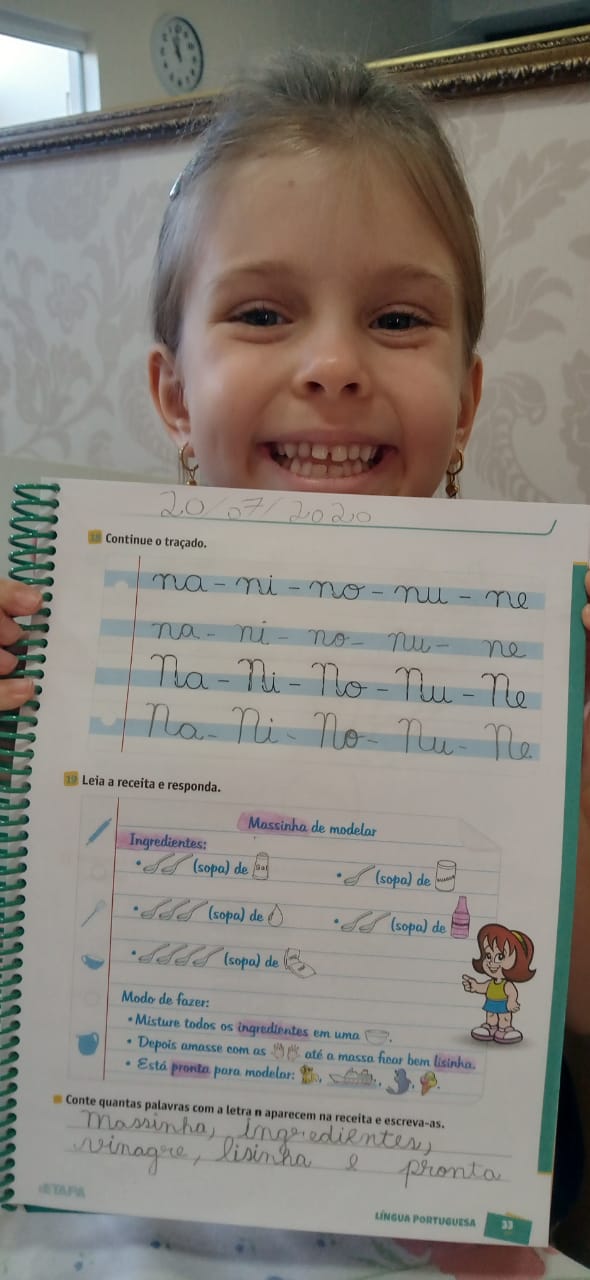 20/07/2020
18 Continue o traçado.
na - ni - no - nu - ne
na - ni - no - nu - ne
Na - Ni - No - Nu - Ne
Na - Ni - No - Nu - Ne
19 Leia a receita e responda.
Massinha de modelar
Ingredientes:
• (sopa) de Sal • (sopa) de
• (sopa) de • (sopa) de
• (sopa) de
Modo de fazer:
• Misture todos os ingredientes em uma .
• Depois amasse com as até a massa ficar bem lisinha.
• Está pronta para modelar: , , , .
Conte quantas palavras com a letra n aparecem na receita e escreva-as.
Massinha, ingredientes,
vinagre, lisinha e pronta
ETAPA
LÍNGUA PORTUGUESA 33